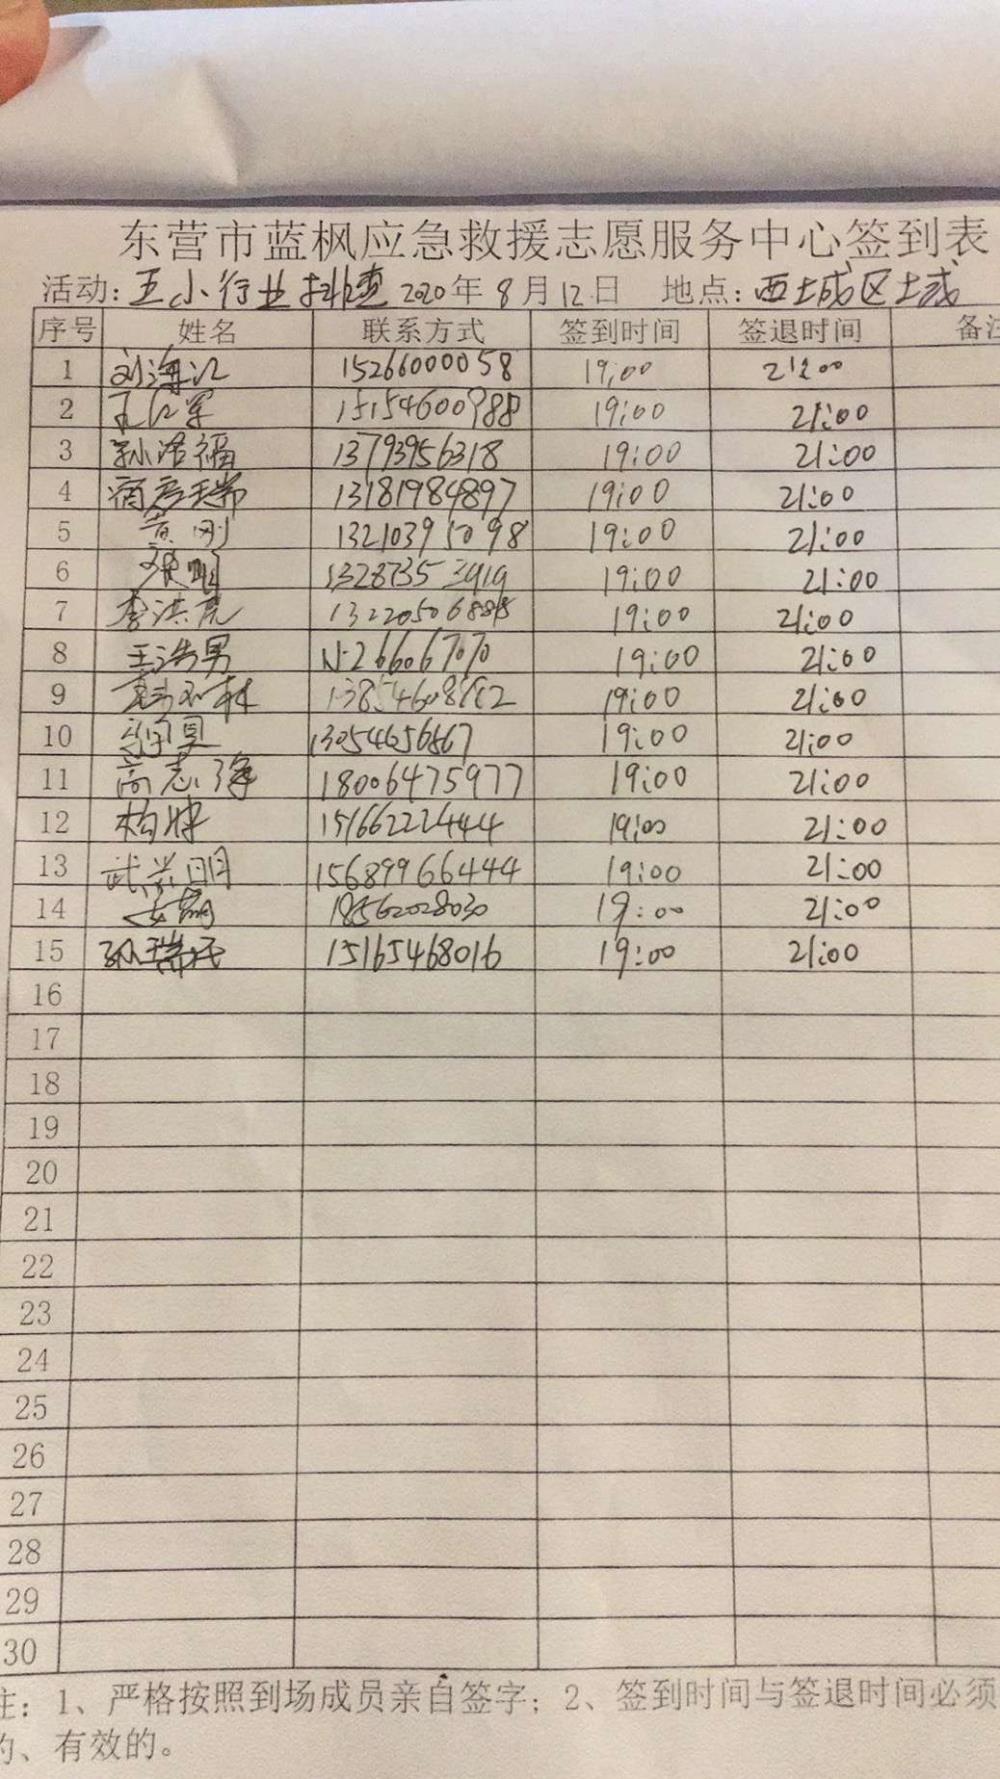 东营市蓝枫应急救援志愿服务中心签到表
活动：五小行业排查 2020年8月12日 地点：西城区域
序号 姓名 联系方式 签到时间 签退时间 备注
1 刘海江 15266000058 19:00 21:00
2 王红军 15154600988 19:00 21:00
3 孙浩福 13793956318 19:00 21:00
4 13181984897 19:00 21:00
5 黄刚 13210395098 19:00 21:00
6 张明 19:00 21:00
7 李洪亮 19:00 21:00
8 王浩男 19:00 21:00
9 19:00 21:00
10 19:00 21:00
11 18006475977 19:00 21:00
12 15166222444 19:00 21:00
13 15689966444 19:00 21:00
14 18562028030 19:00 21:00
15 15165468016 19:00 21:00
16
17
18
19
20
21
22
23
24
25
26
27
28
29
30
注：1、严格按照到场成员亲自签字；2、签到时间与签退时间必须
的、有效的。